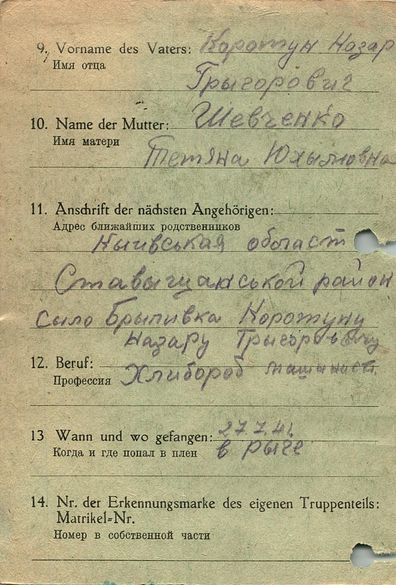 9. Vorname des Vaters: Коротун Назар
Имя отца
Грыгорович
10. Name der Mutter: Шевченко
Имя матери
Тетяна Юхымовна
11. Anschrift der nächsten Angehörigen:
Адрес ближайших родственников
Кыивская область
Ставыщанськой район
сыло Брыливка Коротуну
Назару Грыгоровычу
12. Beruf: Хлибороб машинист
Профессия
13 Wann und wo gefangen: 27.7.41.
Когда и где попал в плен в
14. Nr. der Erkennungsmarke des eigenen Truppenteils:
Matrikel-Nr.
Номер в собственной части